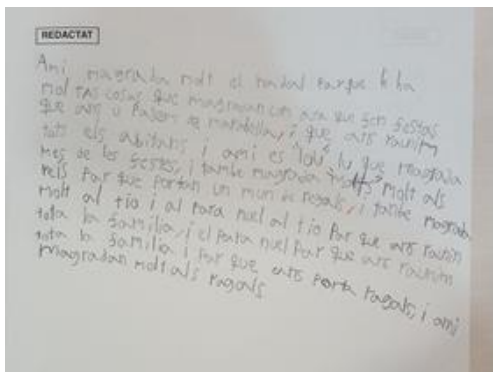 REDACTAT
Ami magrada molt el nadal Parque hi ha
moltas cosas que magradan con ara que fem festas
que ens u Pasem de maradella, i que ens raunim
tots els abitans i ami es "lo" lu que magrada
mes de les festes, i tambe magrada molt als
reis Par que portan un mun de regals, i tambe magrada
molt al tio i al Para nuel al tio Par que ens raunin
tota la familia, i el Para nuel Par que ens raunim
tota la familia i Par que ens Porta ragals, i ami
magradan molt als ragals